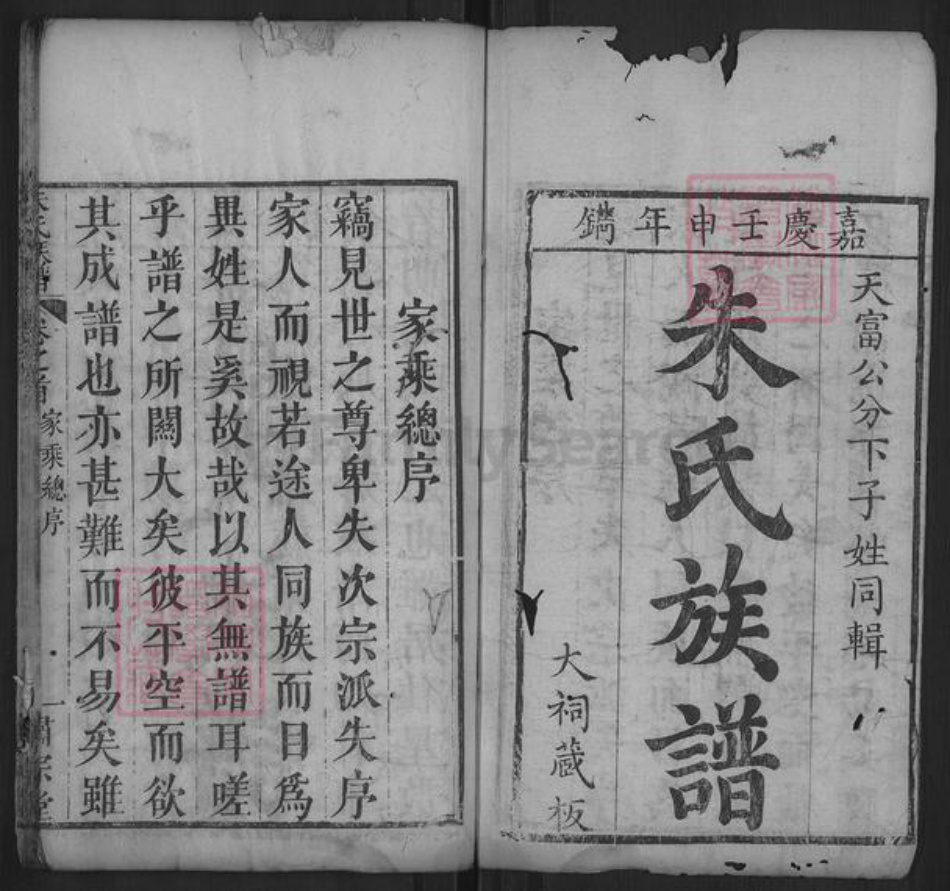 嘉慶壬申年鐫
天富公分下子姓同輯
朱氏族譜
大祠藏板
家乘總序
竊見世之尊卑失次宗派失序
家人而視若途人同族而目爲
異姓是奚故哉以其無譜耳嗟
乎譜之所關大矣彼平空而欲
其成譜也亦甚難而不易矣雖
朱氏族譜
卷之首 家乘總序
一
肅宗堂
FamilySearch